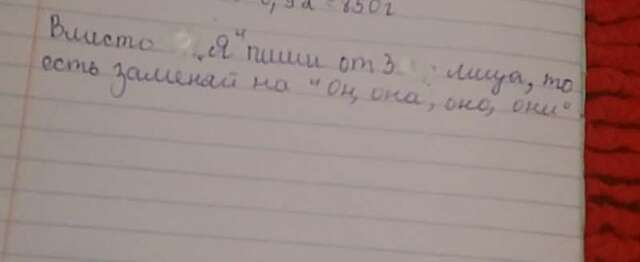 = 850г
Вместо „Я“ пиши от 3 лица, то
есть заменяй на "он, она, оно, они"